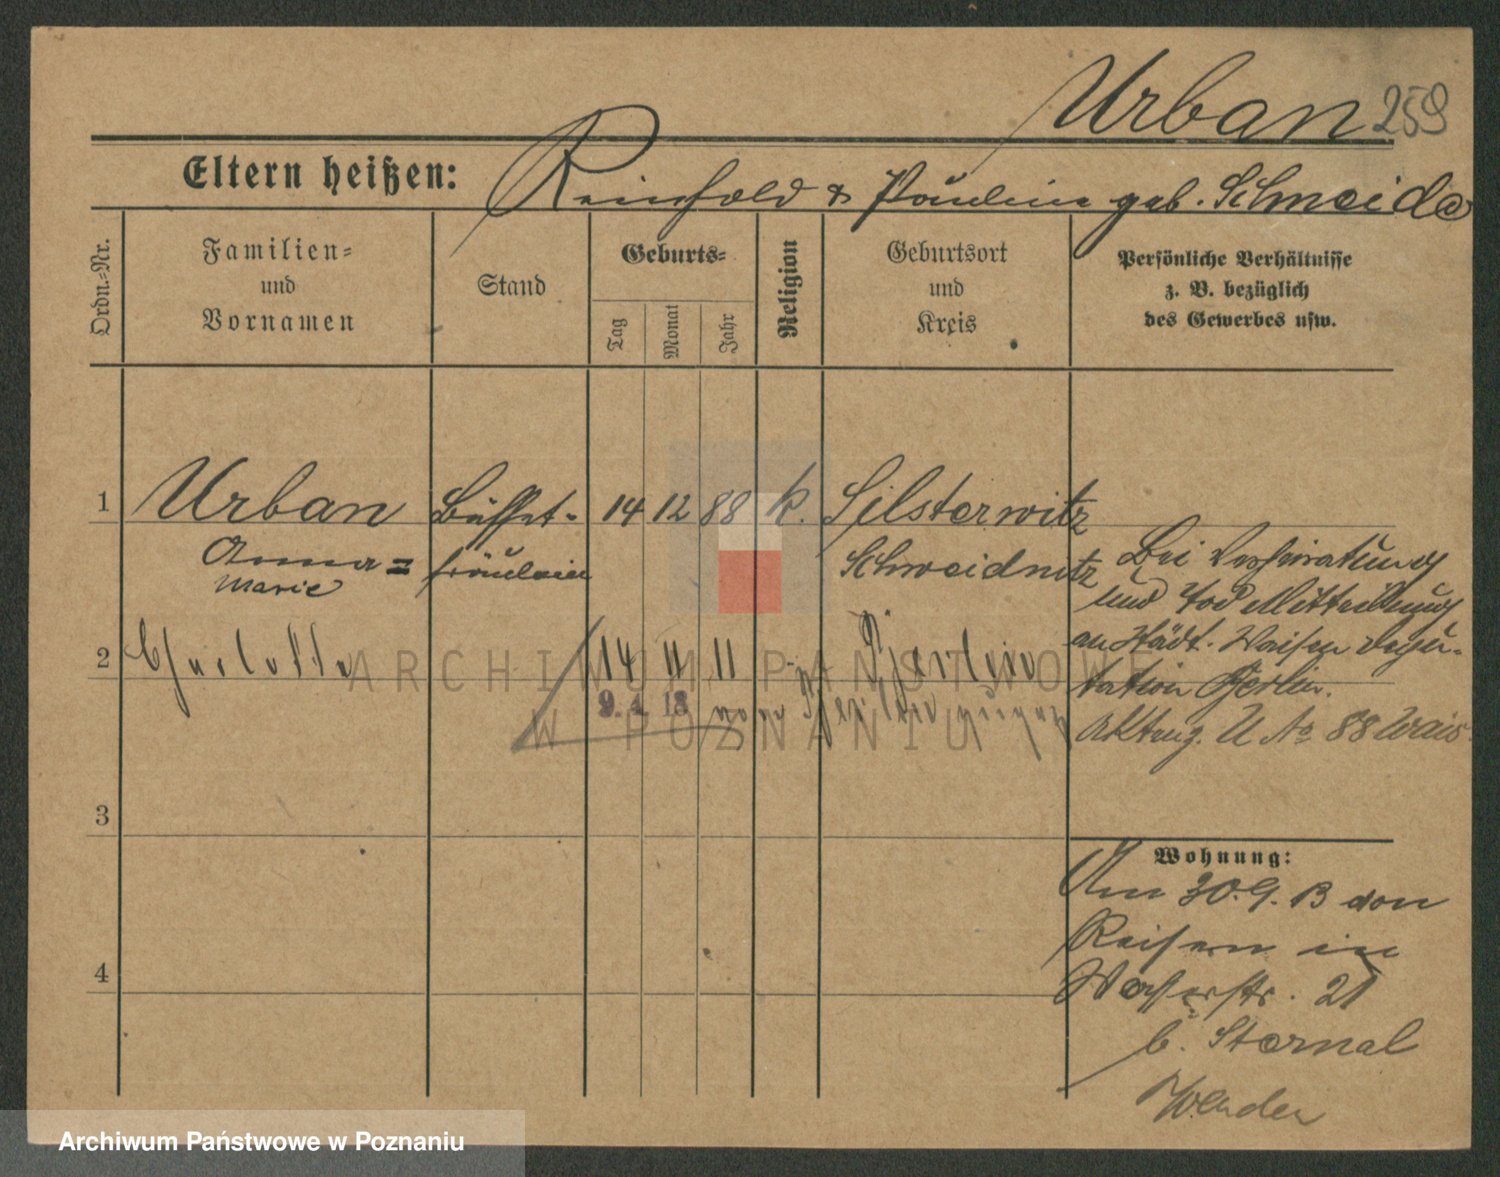 Urban 259
Eltern heißen: Reinhold & Pauline geb. Schneider
Ordn.-Nr.
Familien-
und
Vornamen
Stand
Geburts-
Tag
Monat
Jahr
Religion
Geburtsort
und
Kreis
Persönliche Verhältnisse
z. B. bezüglich
des Gewerbes usw.
1 Urban Büffet- 14 12 88 k. Silsterwitz
Anna = fräulein Schweidnitz
Marie
Bei Verheiratung
und Tod Mitteilung
an Städt. Waisen Depu-
tation Berlin.
Aktenz. U No 88 Wais.
2 Charlotte 14 11 11 Berlin
9. 4. 13
3
Wohnung:
Am 30.9.13 von
Reisen in
Wasserstr. 21
b. Sternal
4
ARCHIWUM PAŃSTWOWE
W POZNANIU
Archiwum Państwowe w Poznaniu